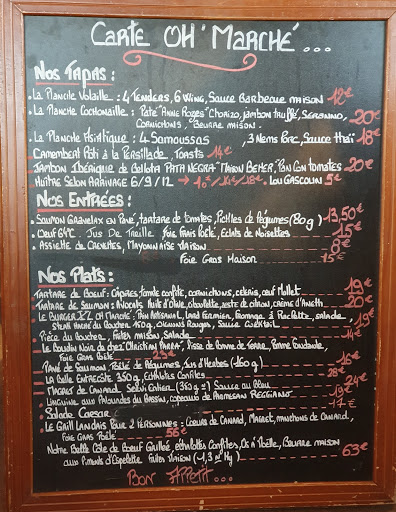 Carte OH' Marché...
Nos Tapas :
. La Planche Volaille : 4 Tenders, 6 Wing, Sauce Barbecue maison 12€
. La Planche Cochonaille : Pâté "Anne Rozes" Chorizo, jambon truffé, Serrano,
Cornichons, Beurre maison. 20€
. La Planche Asiatique : 4 Samoussas, 3 Nems Porc, Sauce thaï 18€
Camembert Rôti à la Persillade, Toasts 14€
Jambon Ibérique de Bellota PATA NEGRA Maison BEHER, Pan Con tomates 20€
Huître Selon Arrivage 6/9/12 → Lou Gascoun 5€
Nos Entrées :
Saumon Gravelax en Pané, tartare de tomates, Pickles de légumes (80g) 13,50€
. Oeuf 64°C Jus De Treille Foie Frais Poêlé, éclats de Noisettes 15€
. Assiette de Crevettes, Mayonnaise maison 8€
Foie Gras Maison 15€
Nos Plats :
Tartare de Boeuf : Câpres, tomate confite, cornichons, céleris, oeuf Mollet 19€
Tartare de Saumon : Avocats, Huile d'Olive, ciboulette, zeste de citron, crème d'Aneth 20€
Le Burger XL OH Marché : Pain Artisanal, Lard Fermier, fromage à Raclette, salade,
Steak Haché du Boucher 150g, Oignons Rouges, Sauce Cocktail 19€
Pièce du Boucher, Frites maison, Salade 14€
Le Boudin Noir de chez Christian Parra, Pomme de Terre, Pomme Fondante,
Foie Gras Poêlé 23€
Pavé de Saumon, Poêlée de légumes, Jus d'Herbes (160g) 16€
La Belle Entrecôte 350g, échalotes Confites 28€
Magret de Canard Servi Entier (350g) Sauce au Bleu 24€
Linguine aux Palourdes du Bassin, copeaux de Parmesan Reggiano 19€
Salade Caesar 17€
Le Grill Landais Pour 2 Personnes : Coeurs de Canard, Magret, manchons de Canard,
Foie Gras Poêlé 56€
Notre Belle Côte de Boeuf Grillée, échalotes Confites, Os à Moëlle, Beurre maison
aux Piments d'Espelette Frites Maison (1,3 Kg) 63€
Bon Appétit...